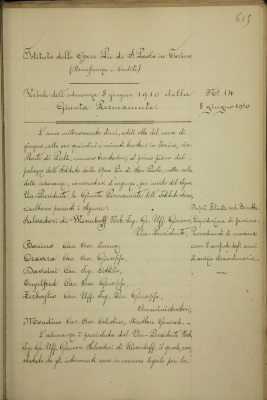 615
Istituto delle Opere Pie di S. Paolo in Torino
(Beneficenza e Credito)
Verbale dell'adunanza 8 giugno 1910 della
Giunta Permanente.
N.° 14
8 giugno 1910
L'anno millenovecento dieci, addì otto del mese di
giugno, alle ore quindici e minuti trenta, in Torino, via
Monte di Pietà, numero trentadue, al primo piano del
palazzo dell'Istituto delle Opere Pie di San Paolo, nella sala
delle adunanze, convocatasi d'urgenza, per invito del Signor
Vice-Presidente, la Giunta Permanente dell'Istituto stesso,
risultano presenti i signori:
Salvadori di Wiesenhoff Nob. Ing. Gr. Uff. Giacomo,
Vice-Presidente,
Bonino Cav. Avv. Lorenzo,
Cravera Cav. Avv. Giuseppe,
Davicini Cav. Ing. Vittorio,
Engelfred Cav. Giuseppe,
Zerboglio Cav. Uff. Ing. Giuseppe,
Amministratori;
Mondino Cav. Avv. Celestino, Direttore Generale.
L'adunanza è presieduta dal Vice-Presidente Nob.
Ing. Gr. Uff. Giacomo Salvadori di Wiesenhoff, il quale, con-
statato che gli intervenuti sono in numero legale per la